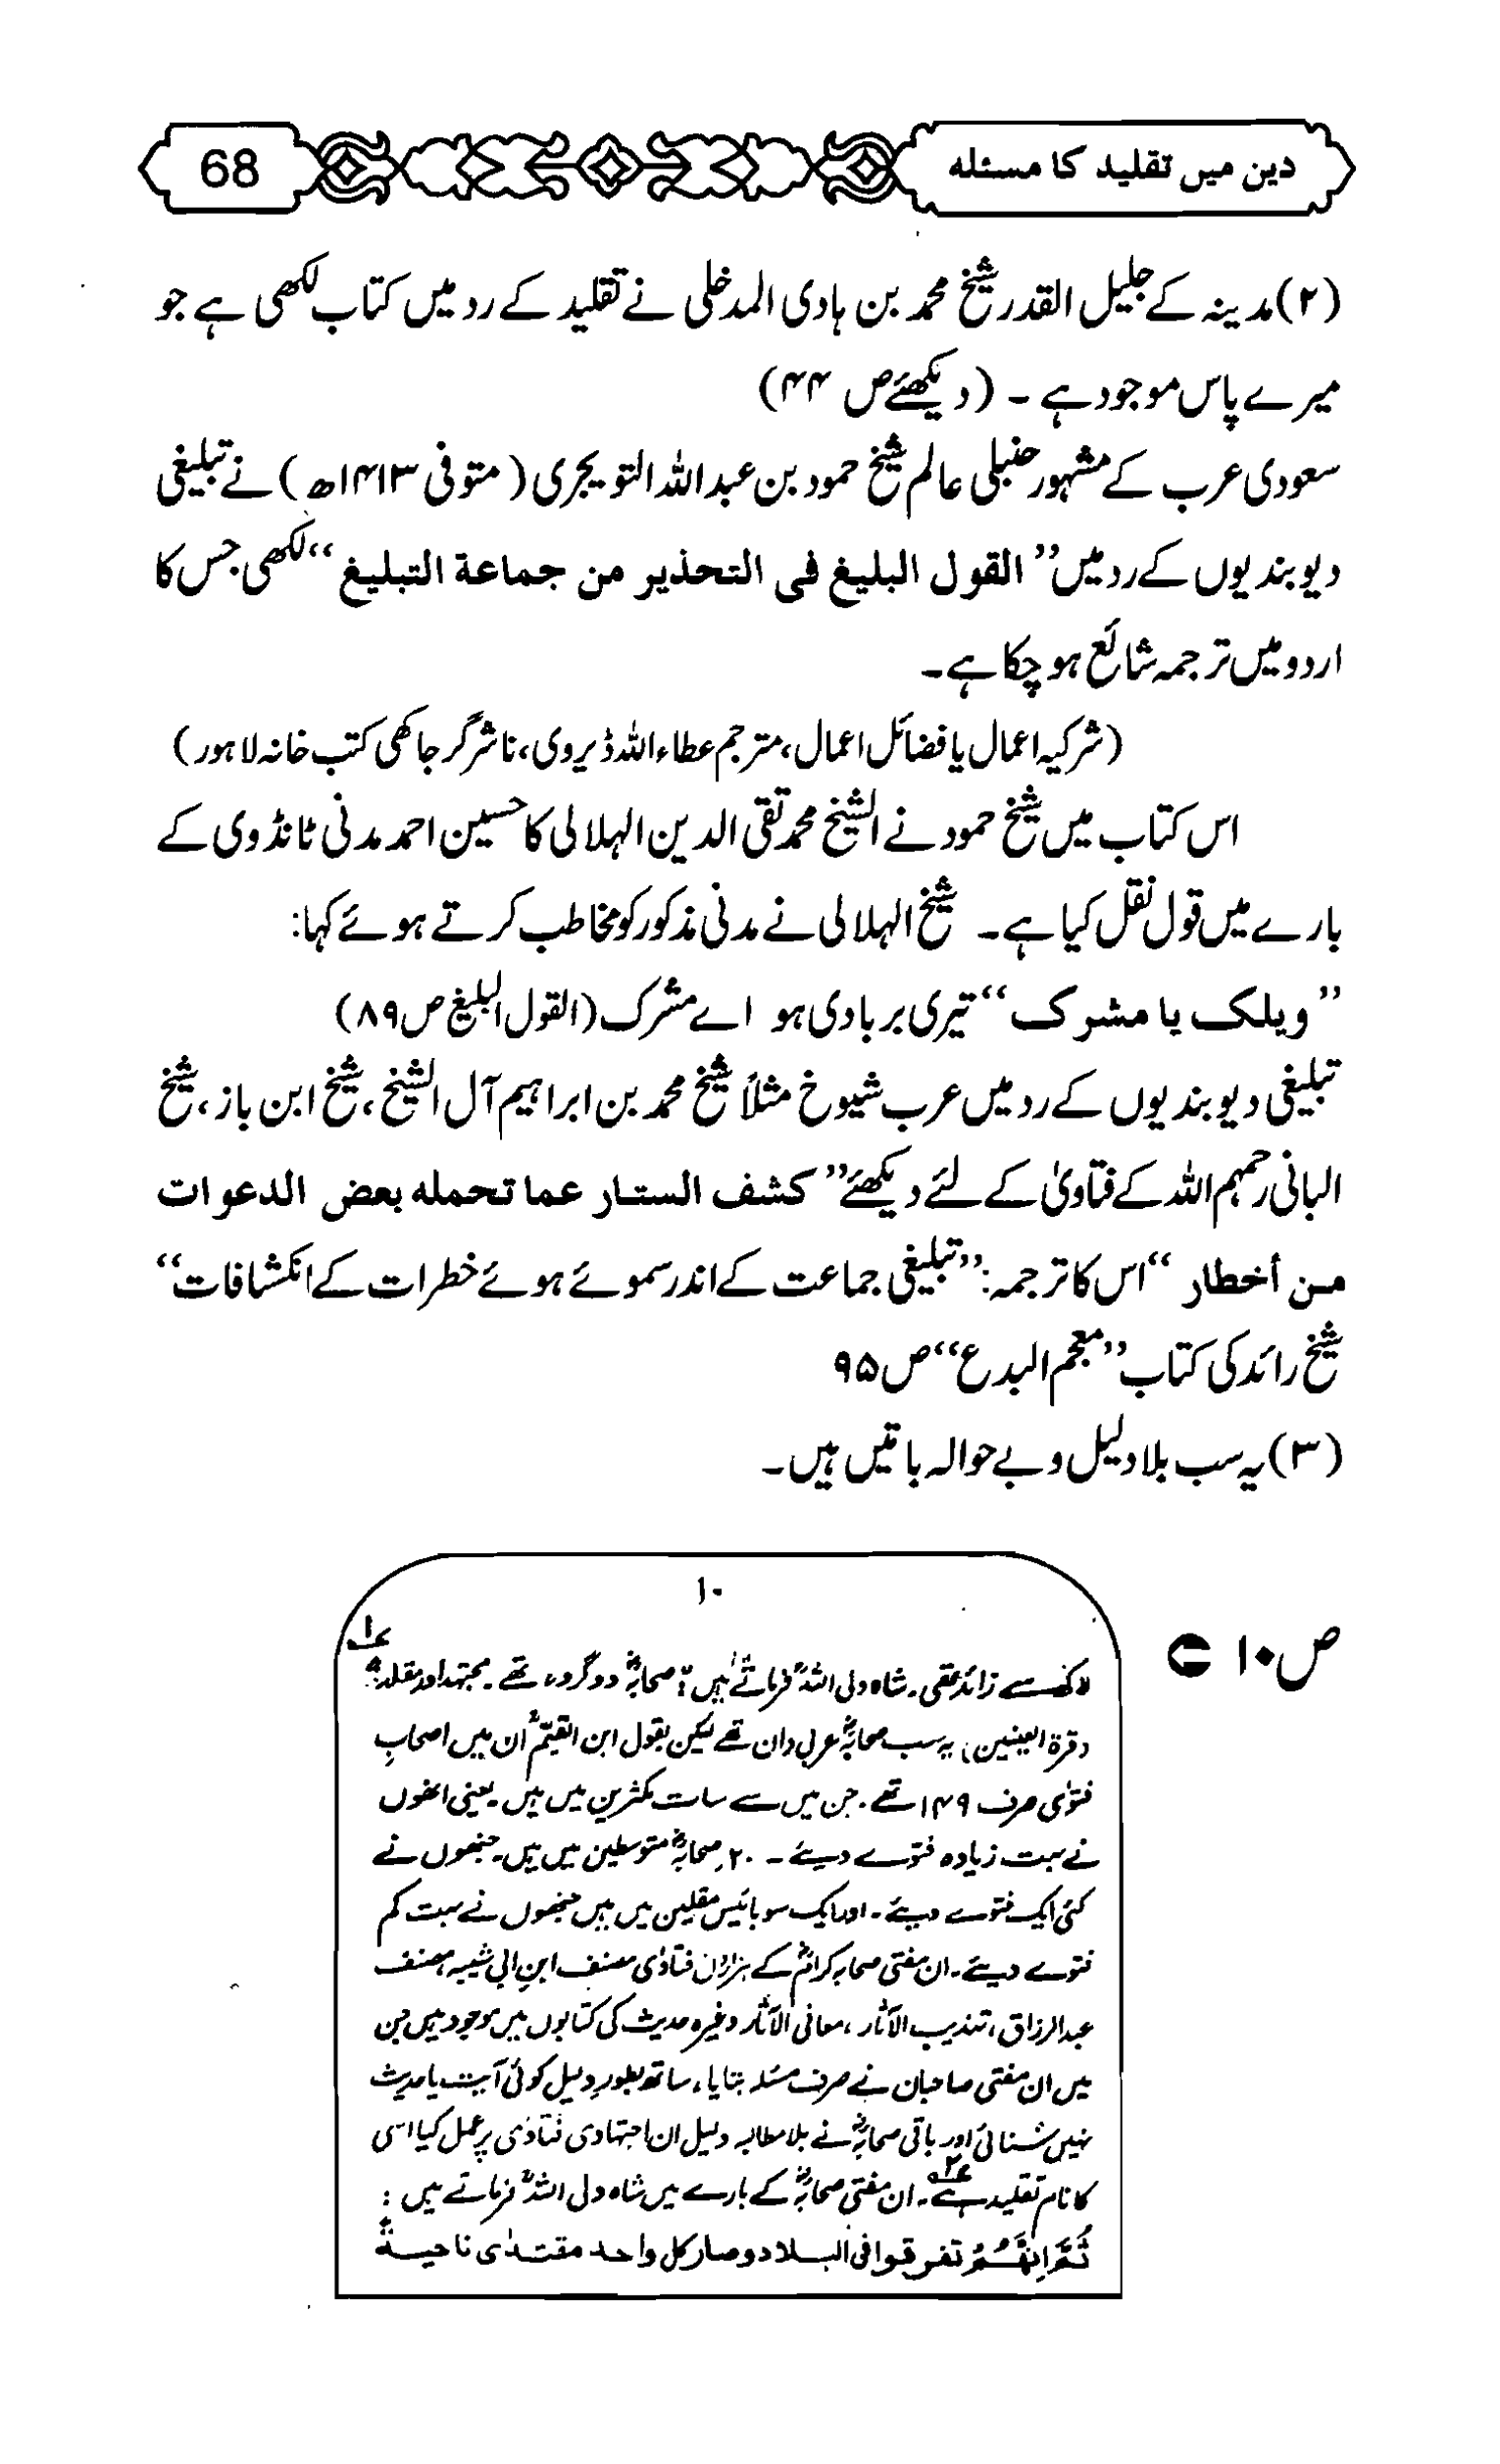 دین میں تقلید کا مسئلہ
68
(۲) مدینہ کے جلیل القدر شیخ محمد بن ہادی المدخلی نے تقلید کے رد میں کتاب لکھی ہے جو
میرے پاس موجود ہے ۔ (دیکھئے ص ۴۴)
سعودی عرب کے مشہور حنبلی عالم شیخ حمود بن عبداللہ التویجری (متوفی ۱۴۱۳ھ) نے تبلیغی
دیوبندیوں کے رد میں ’’القول البلیغ فی التحذیر من جماعة التبلیغ‘‘ لکھی جس کا
اردو میں ترجمہ شائع ہو چکا ہے۔
(شرکیہ اعمال یا فضائل اعمال، مترجم عطاء اللہ ڈیروی، ناشر گرجاکھی کتب خانہ لاہور)
اس کتاب میں شیخ حمود نے الشیخ محمد تقی الدین الہلالی کا حسین احمد مدنی ٹانڈوی کے
بارے میں قول نقل کیا ہے۔ شیخ الہلالی نے مدنی مذکور کو مخاطب کرتے ہوئے کہا:
’’ویلک یا مشرک‘‘ تیری بربادی ہو اے مشرک (القول البلیغ ص ۸۹)
تبلیغی دیوبندیوں کے رد میں عرب شیوخ مثلاً شیخ محمد بن ابراہیم آل الشیخ، شیخ ابن باز، شیخ
البانی رحمہم اللہ کے فتاویٰ کے لئے دیکھئے ’’کشف الستار عما تحمله بعض الدعوات
من أخطار‘‘ اس کا ترجمہ: ’’تبلیغی جماعت کے اندر سموئے ہوئے خطرات کے انکشافات‘‘
شیخ رائد کی کتاب ’’معجم البدع‘‘ ص ۹۵
(۳) یہ سب بلا دلیل و بے حوالہ باتیں ہیں۔
ص ۱۰
۱۰
؏۱
لاکھ سے زائد تھی۔ شاہ ولی اللہؒ فرماتے ہیں: صحابہؓ دو گروہ تھے۔ مجتہد اور مقلد
(قرة العینین) یہ سب صحابہؓ عربی دان تھے لیکن بقول ابن القیمؒ ان میں اصحابِ
فتوٰی صرف ۱۴۹ تھے۔ جن میں سے سات مکثرین میں ہیں۔ یعنی انھوں
نے بہت زیادہ فتوے دیئے ۔ ۲۰ صحابہؓ متوسطین میں ہیں۔ جنھوں نے
کئی ایک فتوے دیئے۔ اور ایک سو بائیس مقلین میں ہیں جنھوں نے بہت کم
فتوے دیئے۔ ان مفتی صحابہ کرامؓ کے ہزاروں فتاوٰی مصنف ابن ابی شیبہ، مصنف
عبدالرزاق، تہذیب الآثار، معانی الآثار وغیرہ حدیث کی کتابوں میں موجود ہیں جن
میں ان مفتی صاحبان نے صرف مسئلہ بتایا، ساتھ بطور دلیل کوئی آیت یا حدیث
نہیں سُنائی اور باقی صحابہؓ نے بلا مطالبہ دلیل ان اجتہادی فتاوٰی پر عمل کیا اسی
کا نام تقلید ہے؏۲۔ ان مفتی صحابہؓ کے بارے میں شاہ ولی اللہؒ فرماتے ہیں :
ثُمَّ اِنَّهُمْ تفرقوا فی البلاد وصار کل واحد مقتدٰی ناحیةٍ